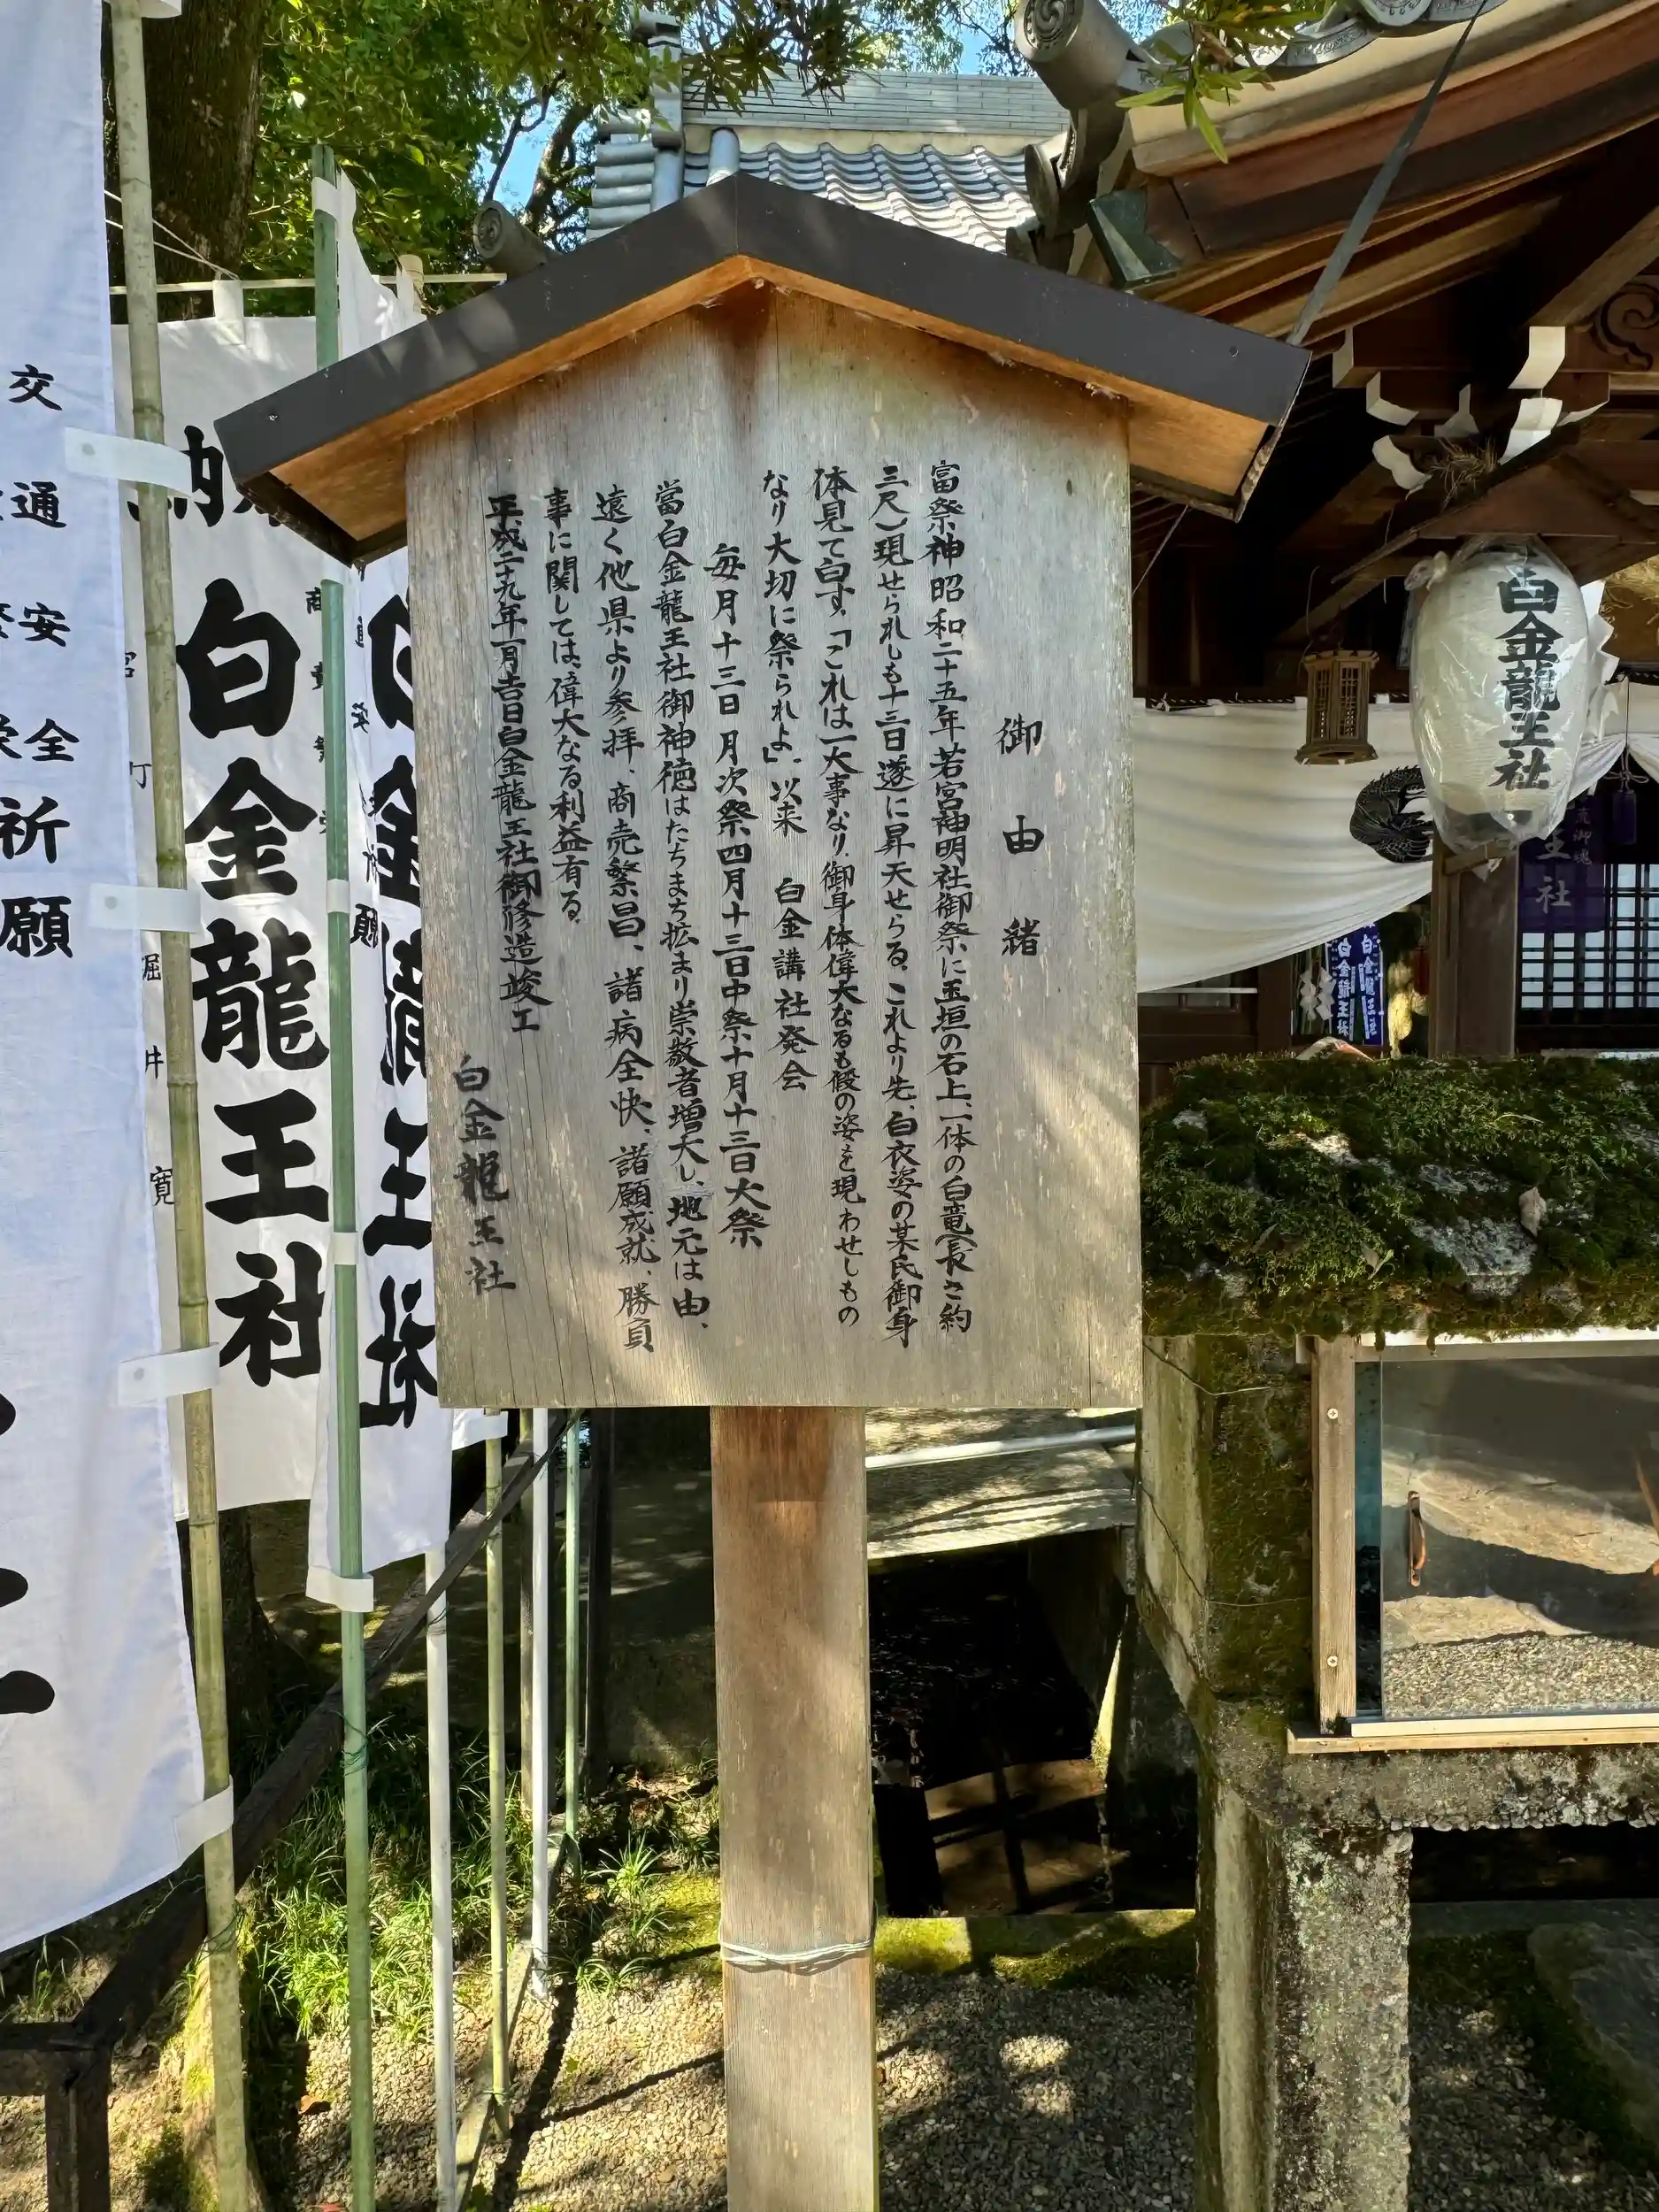 御由緒
富祭神昭和二十五年若宮神明社御祭に玉垣の石上、一体の白竜(長さ約
三尺)現せられしも十三日遂に昇天せらる、これより先、白衣姿の某氏御身
体見て白す、「これは一大事なり、御身体偉大なるも假の姿を現わせしもの
なり大切に祭られよ」、以来 白金講社発会
毎月十三日月次祭四月十三日中祭十月十三日大祭
當白金龍王社御神徳はたちまち拡まり崇敬者増大し、地元は由、
遠く他県より参拝、商売繁昌、諸病全快、諸願成就、勝負
事に関しては、偉大なる利益有る、
平成二十九年一月吉日白金龍王社御修造竣工
白金龍王社
白金龍王社
王社
白金龍王社
白金龍王社
納
白金龍王社
白金龍王社
願
交通安全
祈願
堀井寛